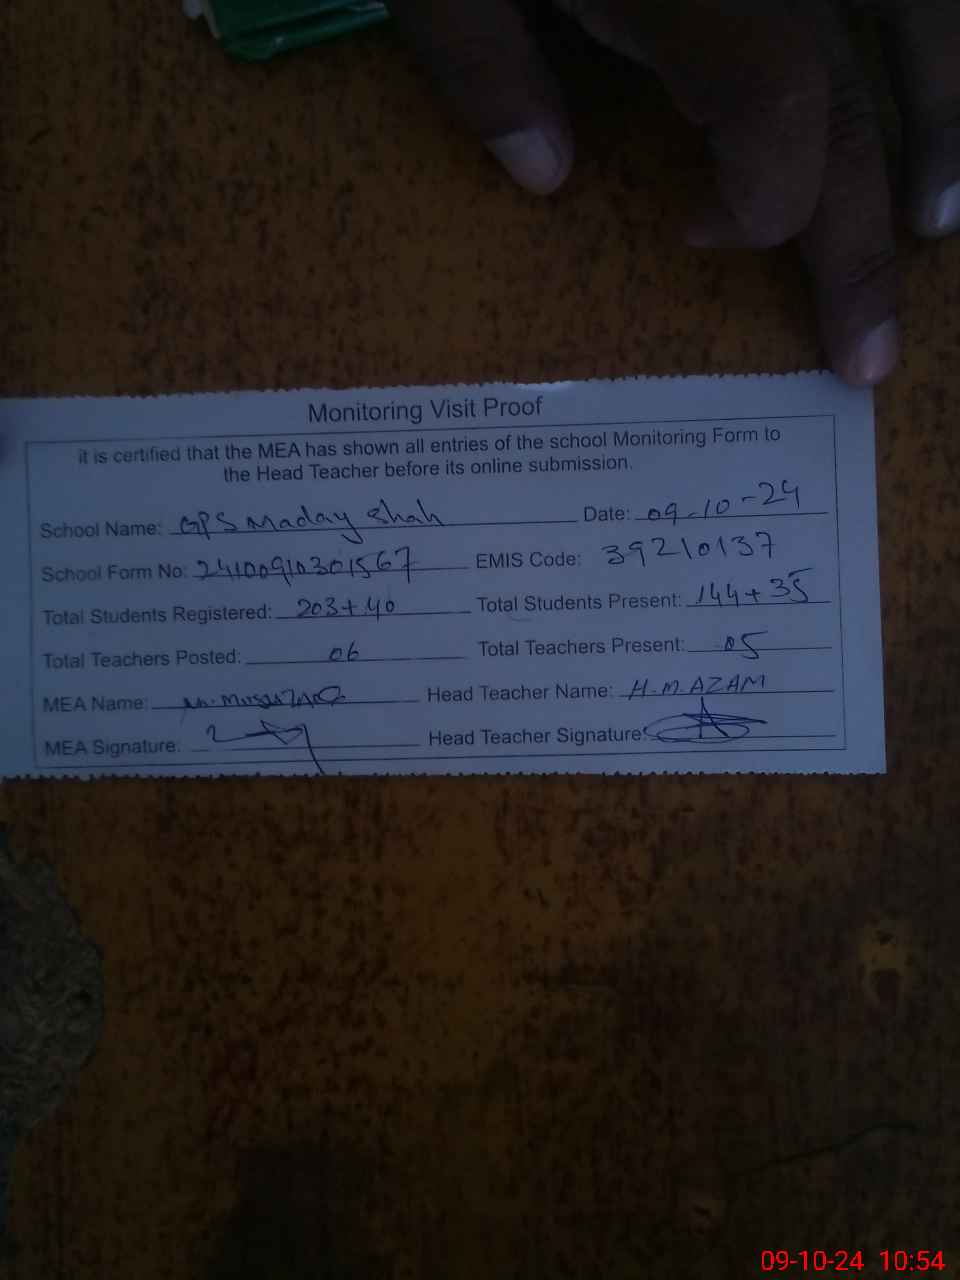 Monitoring Visit Proof
it is certified that the MEA has shown all entries of the school Monitoring Form to
the Head Teacher before its online submission.
School Name: GPS Maday Shah Date: 09-10-24
School Form No: 24100910301567 EMIS Code: 39210137
Total Students Registered: 203+40 Total Students Present: 144+35
Total Teachers Posted: 06 Total Teachers Present: 05
MEA Name: Head Teacher Name: H.M.AZAM
MEA Signature: Head Teacher Signature:
09-10-24 10:54